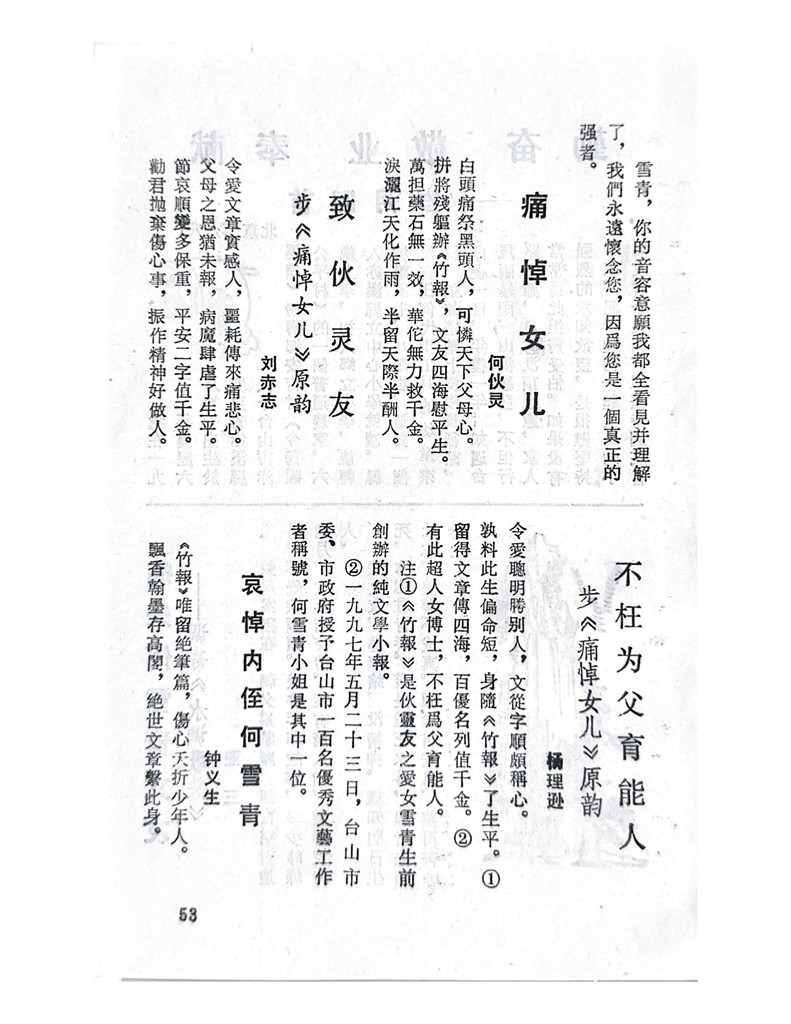 雪青，你的音容意願我都全看見并理解
了，我們永遠懷念您，因爲您是一個真正的
强者。
痛悼女儿
何伙灵
白頭痛祭黑頭人，可憐天下父母心。
拼將殘軀辦《竹報》，文友四海慰平生。
萬担藥石無一效，華佗無力救千金。
淚灑江天化作雨，半留天際半酬人。
致伙灵友
步《痛悼女儿》原韵
刘赤志
令愛文章實感人，噩耗傳來痛悲心。
父母之恩猶未報，病魔肆虐了生平。
節哀順變多保重，平安二字值千金。
勸君抛棄傷心事，振作精神好做人。
不枉为父育能人
步《痛悼女儿》原韵
楊理逊
令愛聰明勝别人，文從字順頗稱心。
孰料此生偏命短，身隨《竹報》了生平。①
留得文章傳四海，百優名列值千金。②
有此超人女博士，不枉爲父育能人。
注①《竹報》是伙靈友之愛女雪青生前
創辦的純文學小報。
②一九九七年五月二十三日，台山市
委、市政府授予台山市一百名優秀文藝工作
者稱號，何雪青小姐是其中一位。
哀悼内侄何雪青
钟义生
《竹報》唯留絶筆篇，傷心夭折少年人。
飄香翰墨存高閣，絶世文章繫此身。
53